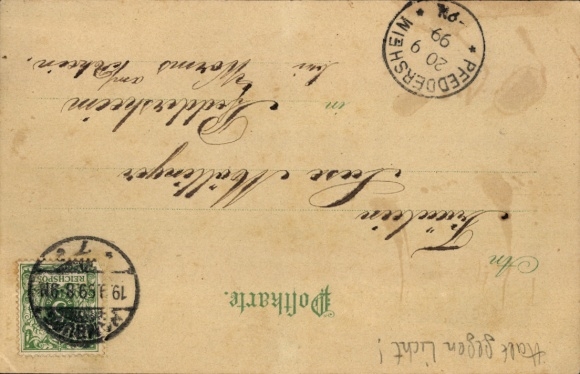 Postkarte.
An
Fräulein
Luise Mollinger
in Pfeddersheim
bei Worms am Rhein.
PFEDDERSHEIM
20 9
99
REICHSPOST
19.9.99.8-9N
Halt gegen Licht!